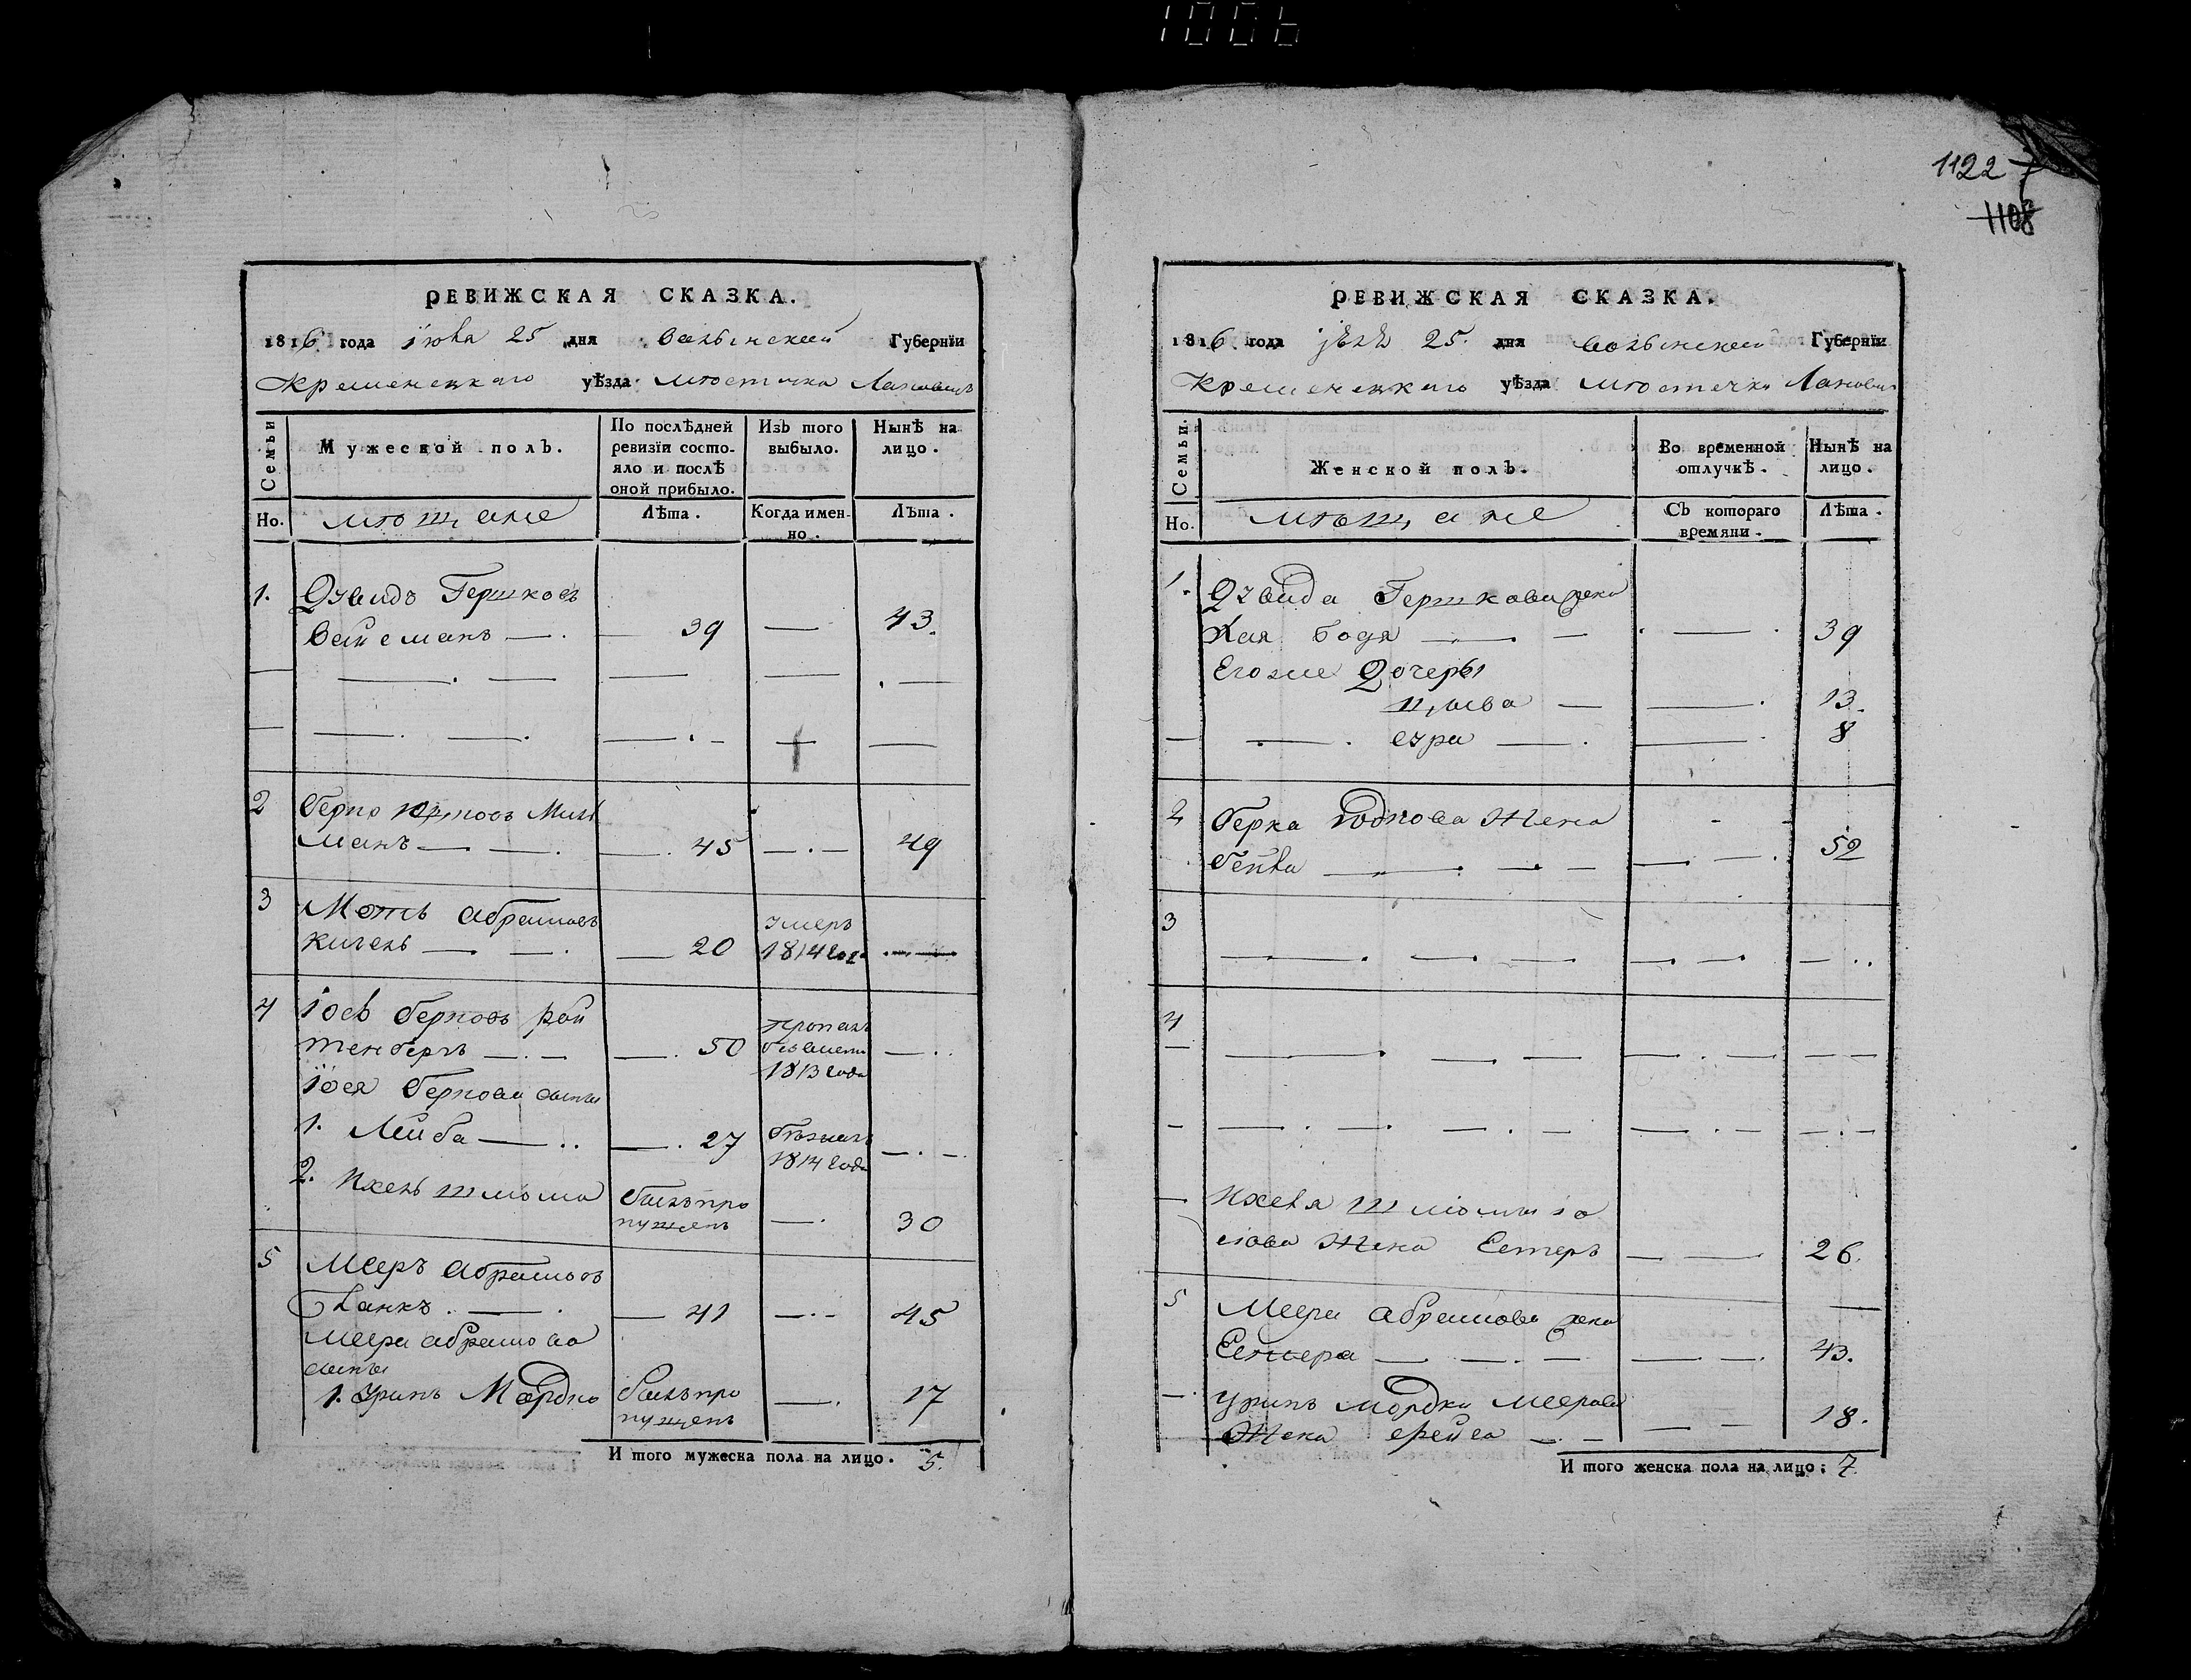 1006
1122 7
1108
РЕВИЖСКАЯ СКАЗКА.
1816 года июля 25 дня Волынской Губернїи
Кременецкаго уѣзда мѣстечка Лановицъ
Семьи
Мужеской полъ.
По послѣдней ревизїи состояло и послѣ оной прибыло.
Изъ того выбыло.
Нынѣ на лицо.
Но.
мѣщане
Лѣта.
Когда именно.
Лѣта.
1. Дувидъ Гершковъ
Вайсманъ — 39 — 43.
2 Берко
манъ — 45 — 49
3 Моть Абрамовъ умеръ
Кигель — 20 1814 года —
4 Іось Берковъ Рой пропалъ
тенберъ — 50 безвести —
1813 года
Іося Беркова сыны
1. Лейба — 27 бѣжалъ —
1814 года
2. Ихель Шлиома былъ про
пущенъ — 30
5 Мееръ Абрамовъ
Ланкъ — 41 — 45
Меера Абрамова
сынъ
1. Уринъ Мордко былъ про — 17
пущенъ
И того мужеска пола на лицо. 5.
РЕВИЖСКАЯ СКАЗКА.
1816 года 25. дня Волынской Губернїи
Кременецкаго уѣзда мѣстечка Лановиц
Семьи.
Женской полъ.
Во временной отлучкѣ.
Нынѣ на лицо.
Но.
мѣщане
Съ котораго времяни.
Лѣта.
1. Дувида Гершкова жена
Хая Бодя — 39
Егоже дочеры
— 13.
— 8
2 Берка Юдкова Жена
— 52
3
4
— Ихеля Шлиомы Іо
сіова Жена Естеръ — 26.
5 Меера Абрамова жена
Естера — 43.
— Урина Мордки Меерова
Жена Фейга — 18.
И того женска пола на лицо: 7